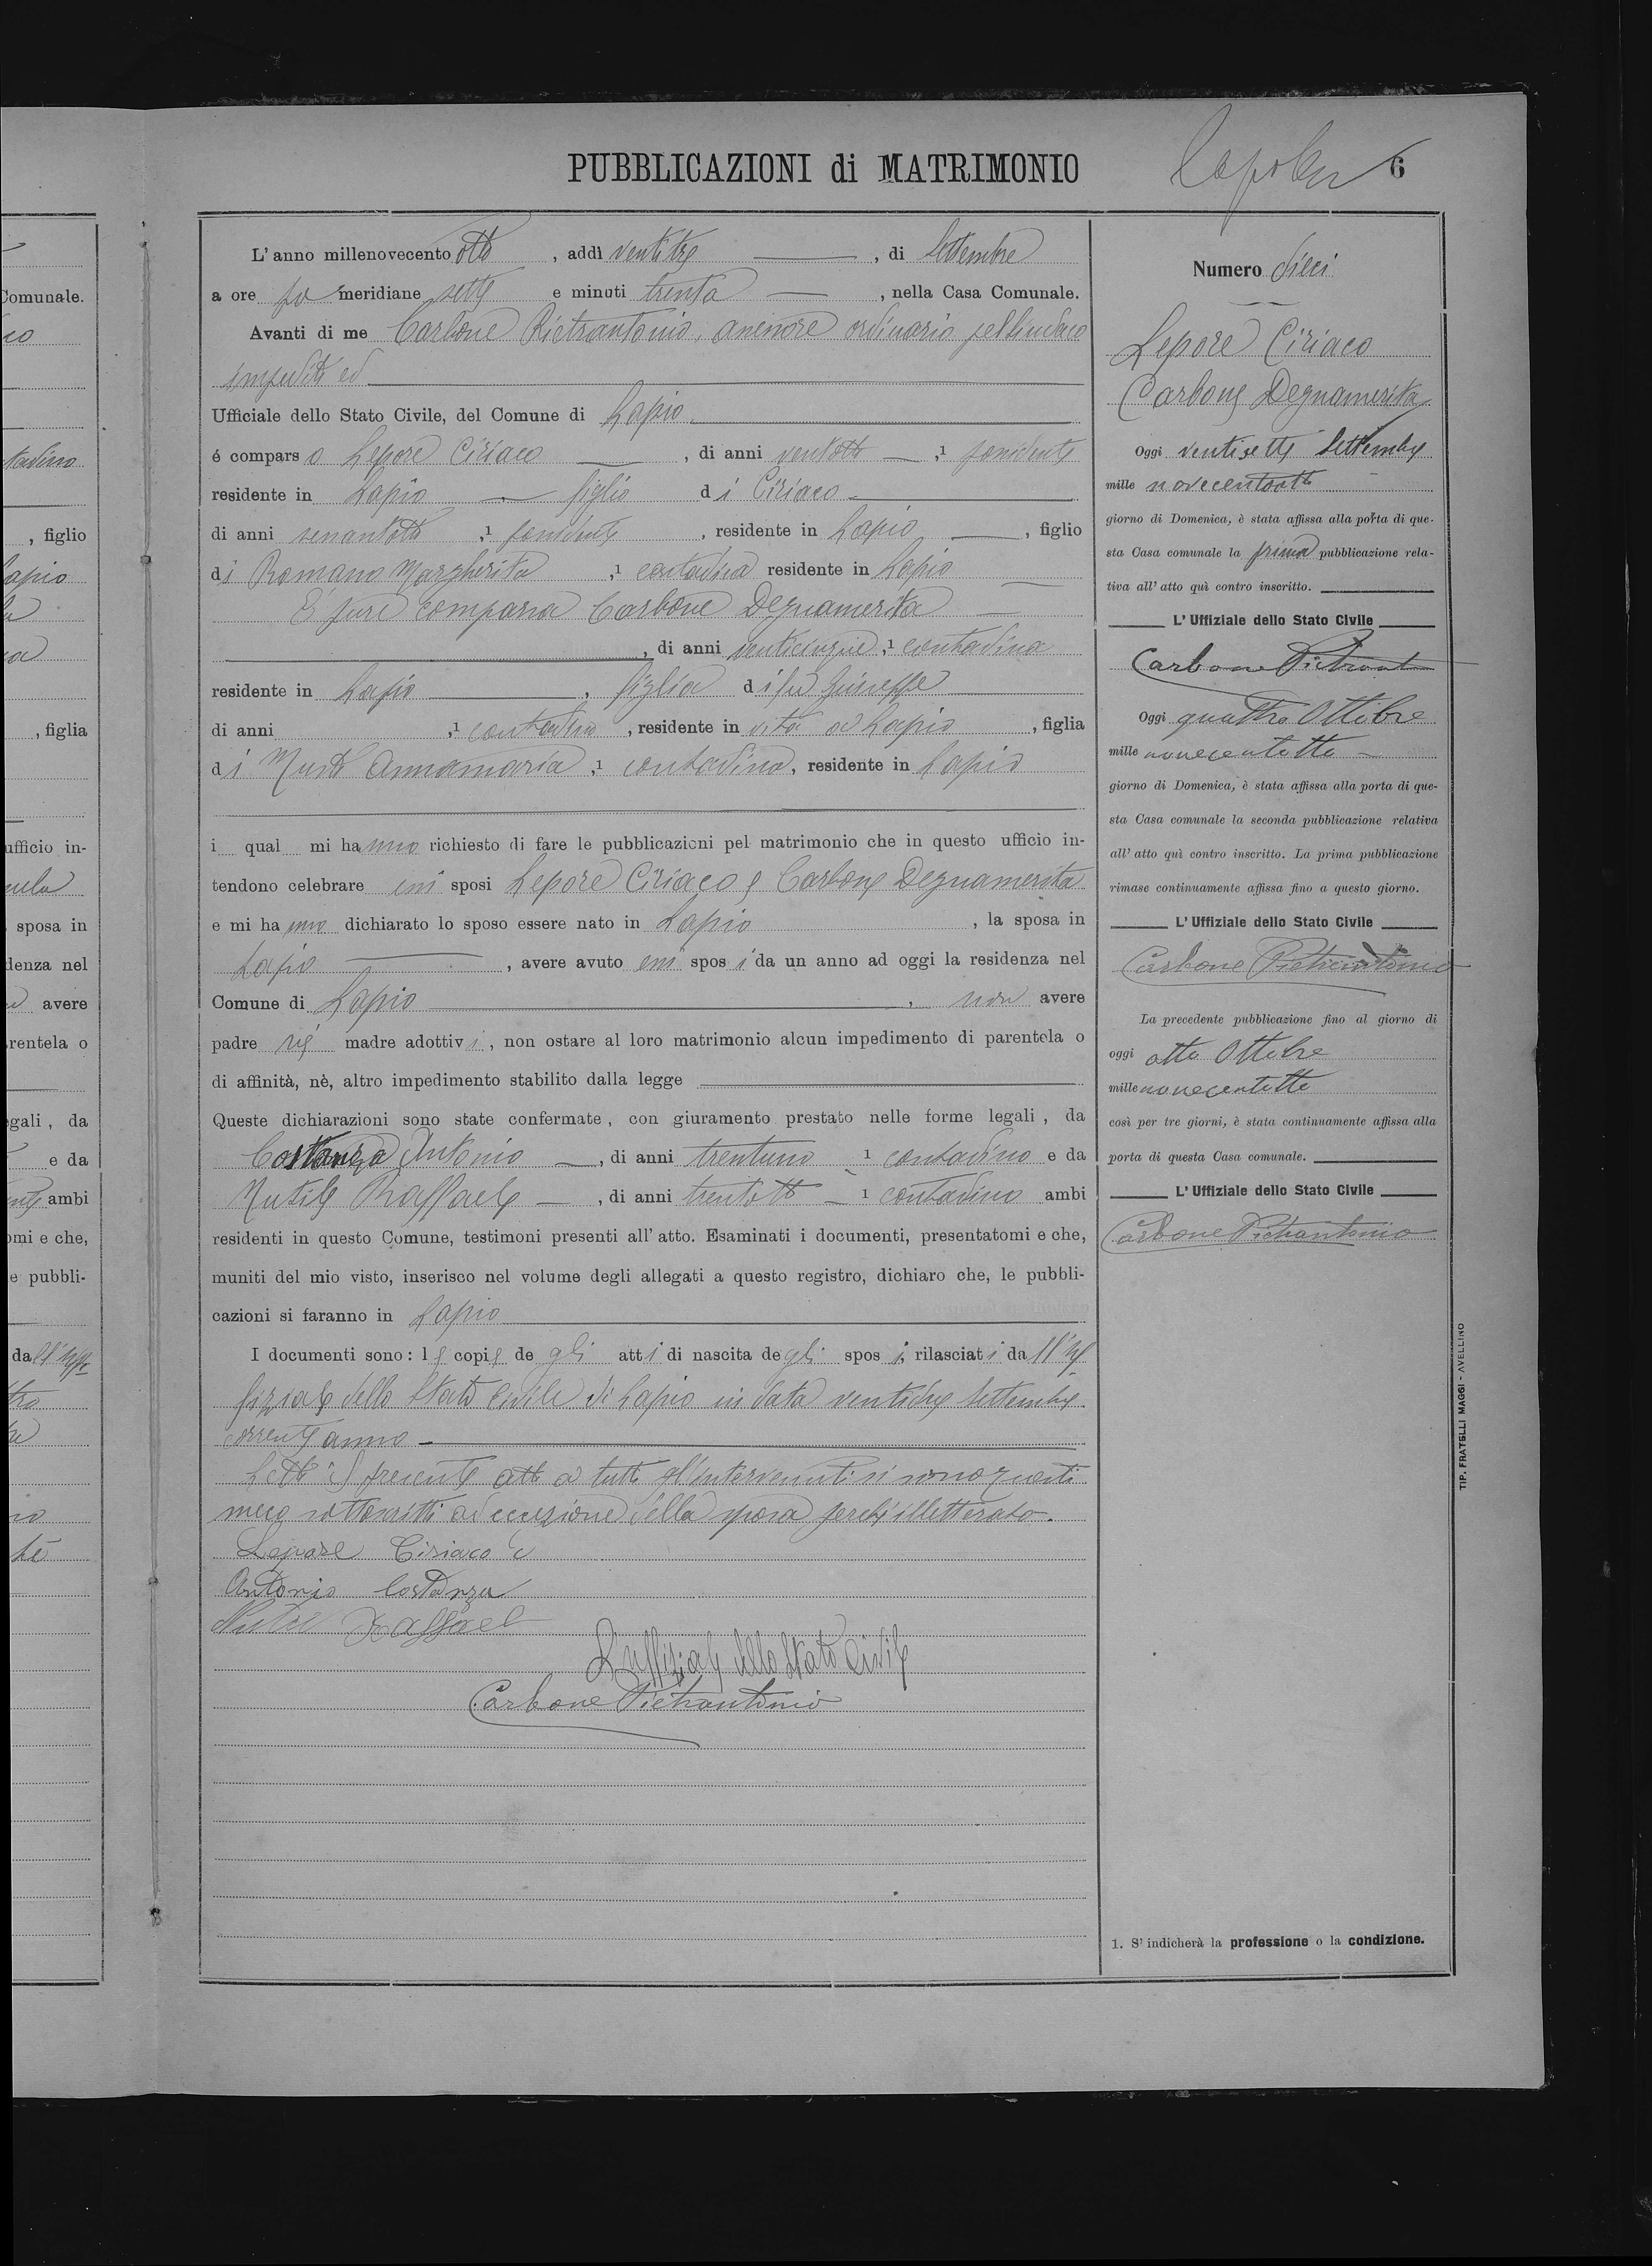 PUBBLICAZIONI di MATRIMONIO
6
L'anno millenovecento otto, addì ventitre, di Settembre
a ore po meridiane sette e minuti trenta, nella Casa Comunale.
Avanti di me Carbone Pietrantonio, assessore ordinario pel Sindaco
impedito ed
Ufficiale dello Stato Civile, del Comune di Lapio
é compars o Lepore Ciriaco, di anni ventotto, 1 possidente
residente in Lapio figlio d i Ciriaco
di anni sessantotto, 1 possidente, residente in Lapio, figlio
d i Romano Margherita, 1 contadina residente in Lapio
È pure comparsa Carbone Degnamerita
, di anni venticinque, 1 contadina
residente in Lapio, figlia d i fu Giuseppe
di anni , 1 contadino, residente in vita a Lapio, figlia
d i Musto Annamaria, 1 contadina, residente in Lapio
i qual mi ha nno richiesto di fare le pubblicazioni pel matrimonio che in questo ufficio in-
tendono celebrare essi sposi Lepore Ciriaco e Carbone Degnamerita
e mi ha nno dichiarato lo sposo essere nato in Lapio, la sposa in
Lapio, avere avuto essi spos i da un anno ad oggi la residenza nel
Comune di Lapio, non avere
padre nè madre adottiv i, non ostare al loro matrimonio alcun impedimento di parentela o
di affinità, nè, altro impedimento stabilito dalla legge
Queste dichiarazioni sono state confermate, con giuramento prestato nelle forme legali, da
Costanza Antonio, di anni trentuno 1 contadino e da
Nutile Raffaele, di anni trentotto 1 contadino ambi
residenti in questo Comune, testimoni presenti all'atto. Esaminati i documenti, presentatomi e che,
muniti del mio visto, inserisco nel volume degli allegati a questo registro, dichiaro che, le pubbli-
cazioni si faranno in Lapio
I documenti sono: l e copi e de gli att i di nascita de gli spos i, rilasciat i da ll'uf
fiziale dello Stato Civile di Lapio in data ventidue Settembre
corrente anno
Letto il presente atto a tutti gl'intervenuti si sono questi
meco sottoscritti ad eccezione della sposa perchè illetterata.
Lepore Ciriaco
Antonio Costanza
Raffaele
L'uffiziale dello Stato Civile
Carbone Pietrantonio
Numero dieci
Lepore Ciriaco
Carbone Degnamerita
Oggi ventisette Settembre
mille novecentootto
giorno di Domenica, è stata affissa alla porta di que-
sta Casa comunale la prima pubblicazione rela-
tiva all'atto quì contro inscritto.
L'Uffiziale dello Stato Civile
Carbone Pietrant
Oggi quattro Ottobre
mille novecentotto
giorno di Domenica, è stata affissa alla porta di que-
sta Casa comunale la seconda pubblicazione relativa
all'atto quì contro inscritto. La prima pubblicazione
rimase continuamente affissa fino a questo giorno.
L'Uffiziale dello Stato Civile
Carbone Pietrantonio
La precedente pubblicazione fino al giorno di
oggi otto Ottobre
mille novecentotto
così per tre giorni, è stata continuamente affissa alla
porta di questa Casa comunale.
L'Uffiziale dello Stato Civile
Carbone Pietrantonio
1. S'indicherà la professione o la condizione.
TIP. FRATELLI MAGGI - AVELLINO
Comunale.
, figlio
, figlia
ufficio in-
sposa in
denza nel
avere
rentela o
egali, da
e da
ambi
omi e che,
e pubbli-